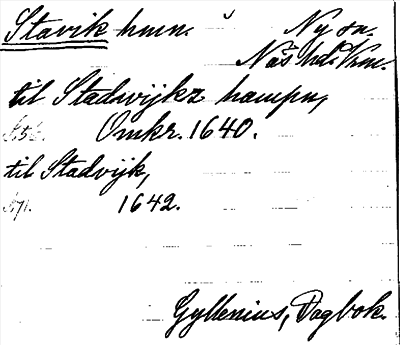 Stavik hmn. Ny sn.
Näs hd. Vrm.
til Stadwijkz hampn,
S. 56. Omkr. 1640.
til Stadvijk,
S. 71. 1642.
Gyllenius, Dagbok.